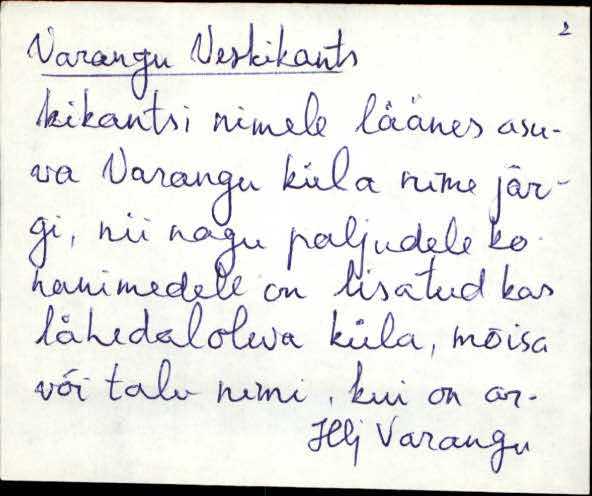 2
Varangu Veskikants
kikantsi nimele läänes asu-
va Varangu küla nime jär-
gi, nii nagu paljudele ko
hanimedele on lisatud kas
lähedaloleva küla, mõisa
või talu nimi, kui on ar-
Hlj Varangu